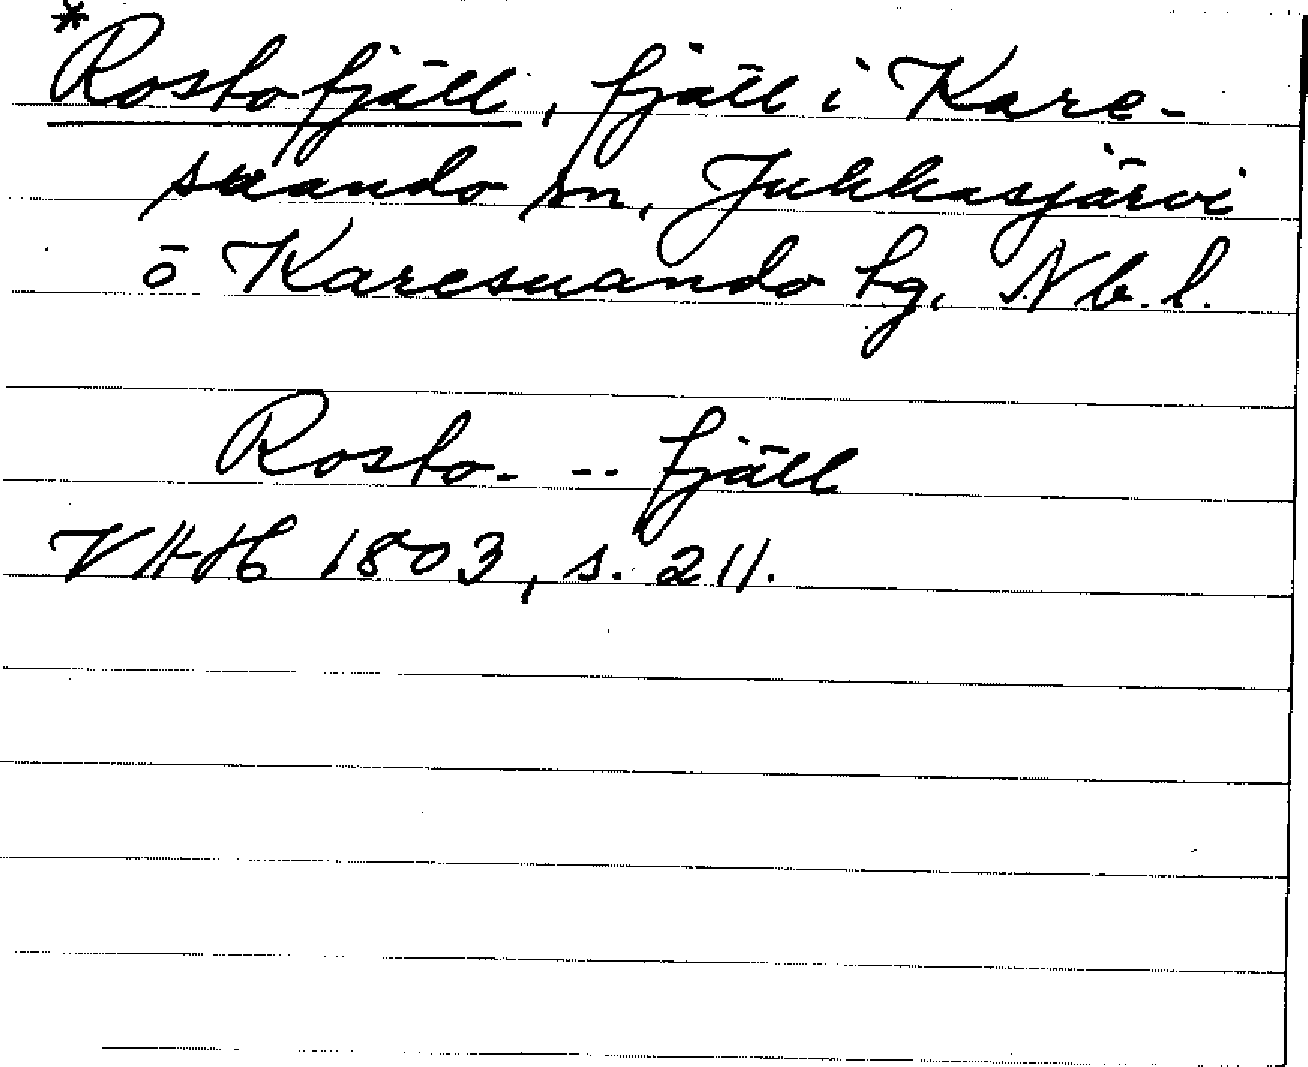 *Rostofjäll, fjäll i Kare-
suando sn, Jukkasjärvi
o Karesuando tg, Nb.l.
Rosto- -- fjäll
VHAH 1803, s. 211.